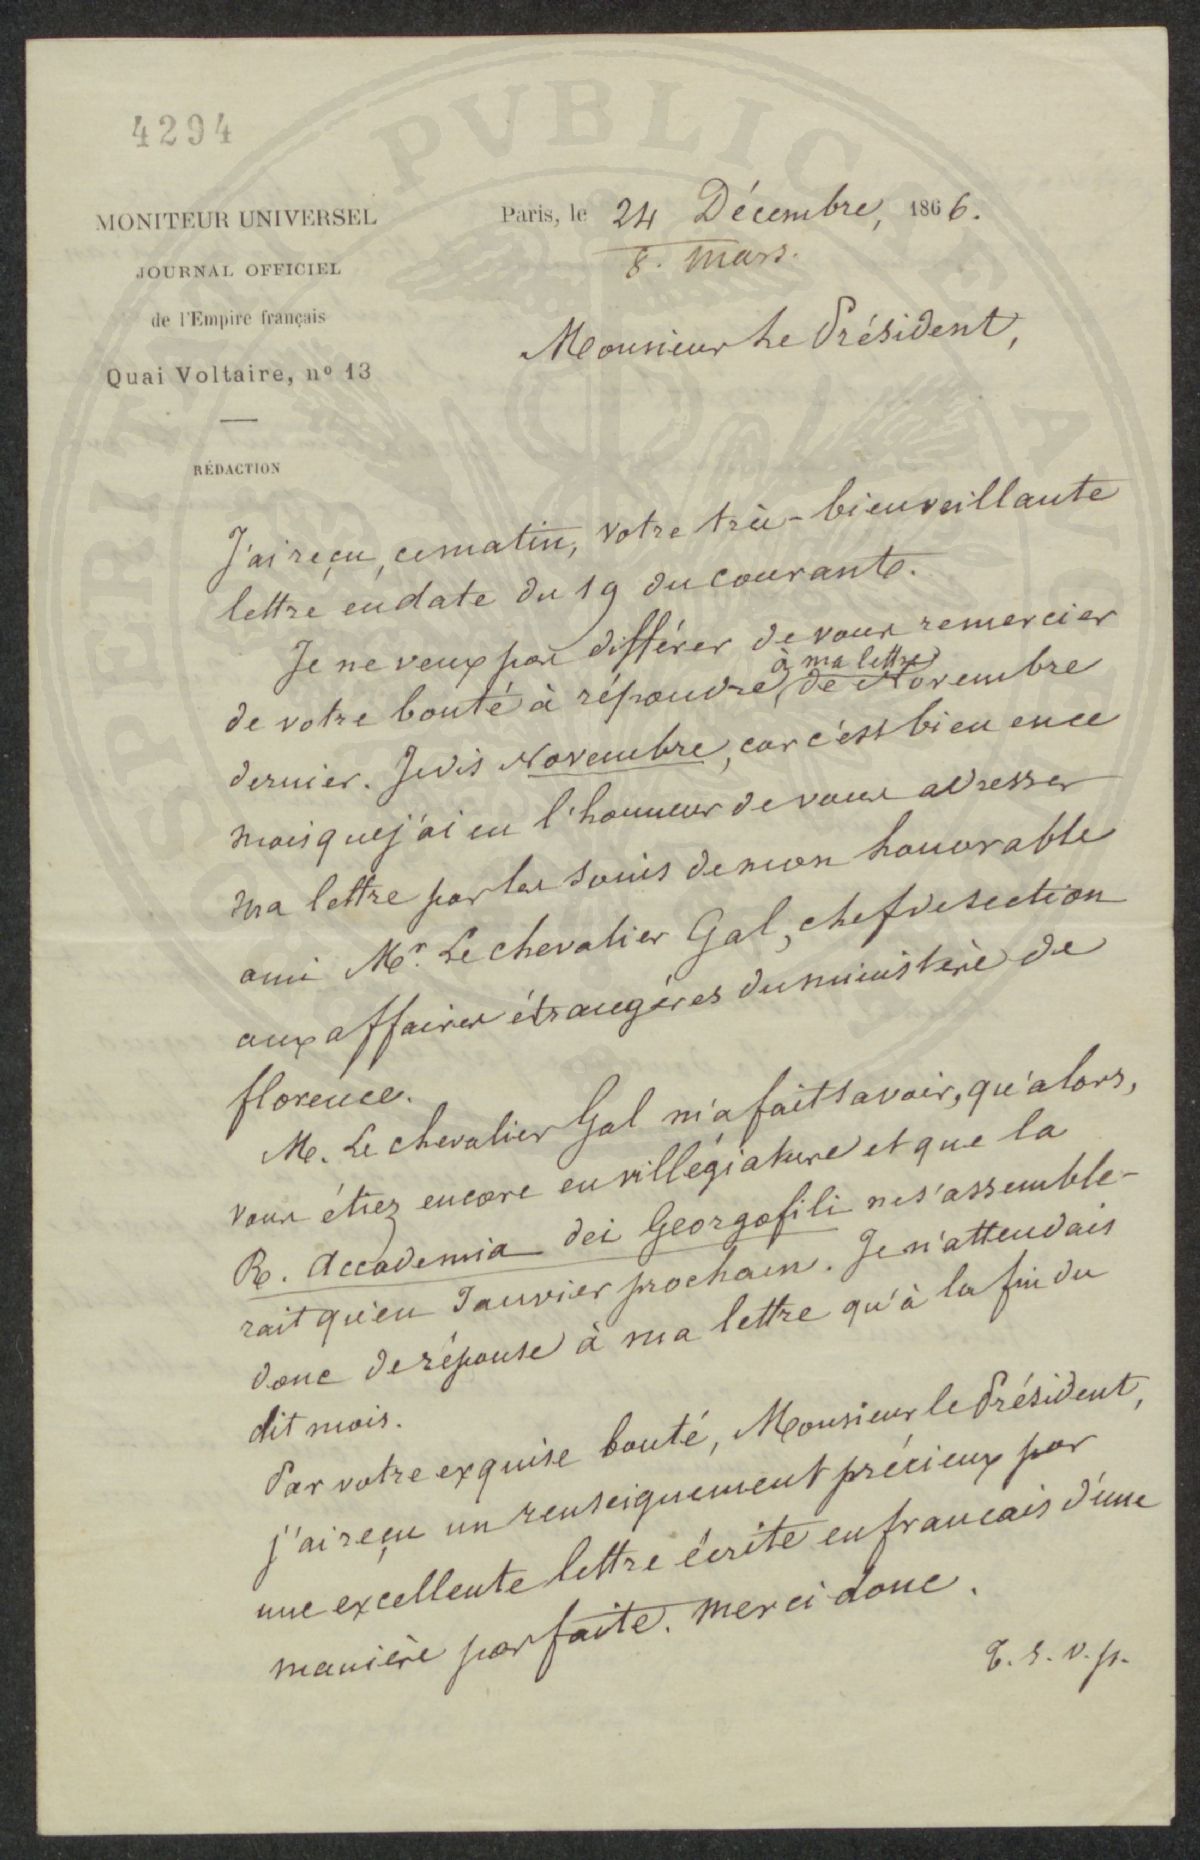 4294
MONITEUR UNIVERSEL
JOURNAL OFFICIEL
de l'Empire français
Quai Voltaire, nº 13
RÉDACTION
Paris, le 24 Décembre, 1866.
8. Mars.
Monsieur Le Président,
J'ai reçu, ce matin, votre très-bienveillante
lettre en date du 19 du courant.
Je ne veux pas différer de vous remercier
de votre bonté à répondre, à ma lettre de Novembre
dernier. Je dis Novembre, car c'est bien en ce
mois que j'ai eu l'honneur de vous adresser
ma lettre par les soins de mon honorable
ami Mr. Le chevalier Gal, chef de section
aux affaires étrangères du ministère de
florence.
M. Le chevalier Gal m'a fait savoir, qu'alors,
vous étiez encore en villégiature et que la
R. Accademia dei Georgofili ne s'assemble-
rait qu'en Janvier prochain. Je n'attendais
donc de réponse à ma lettre qu'à la fin du
dit mois.
Par votre exquise bonté, Monsieur le Président,
j'ai reçu un renseignement précieux par
une excellente lettre écrite en francais d'une
manière parfaite. Merci donc.
T. S. v. p.
PVBLICAE